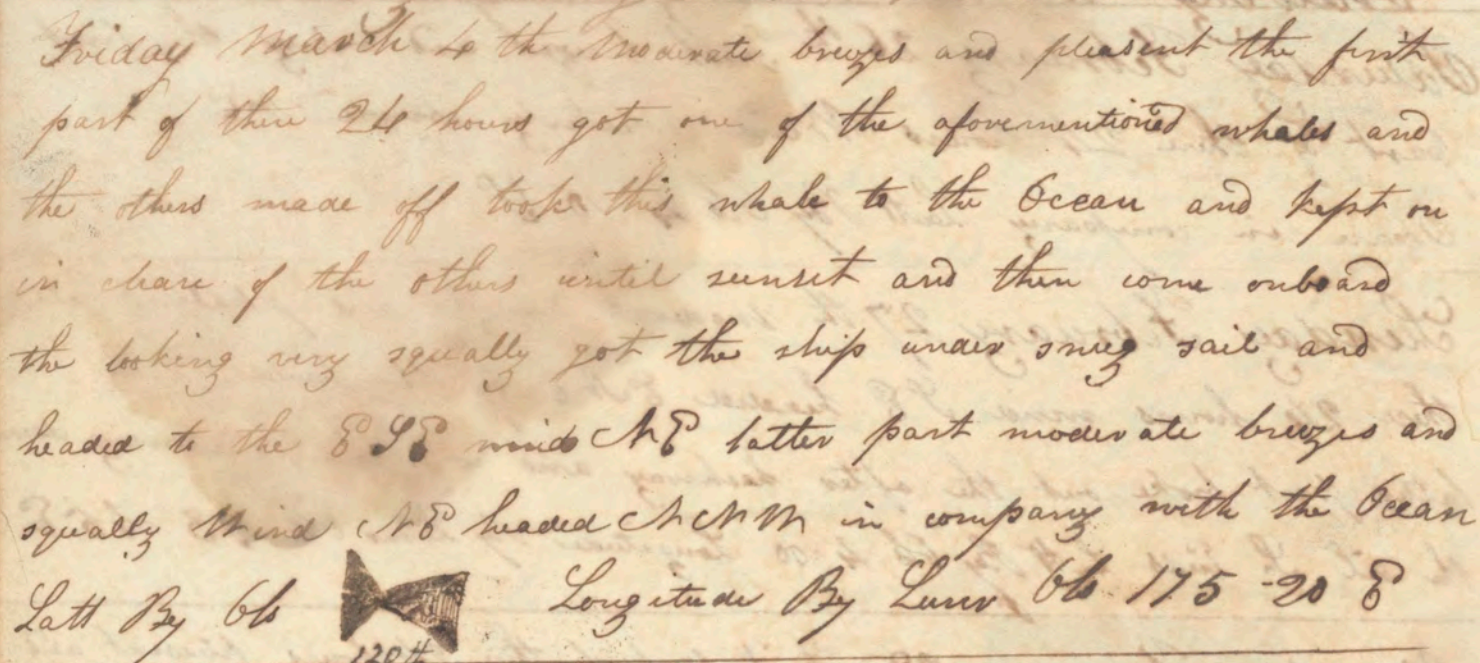 Friday March 4 th Moderate breezes and pleasent the first
part of these 24 hours got one of the aforementioned whales and
the others made off took this whale to the Ocean and kept on
in chase of the others until sunset and then come onboard
the looking very squally got the ship under snug sail and
headed to the ESE wind NE latter part moderate breezes and
squally Wind NE headed NNW in company with the Ocean
Latt By Obs Longitude By Lunr Obs 175-20 E
120 th